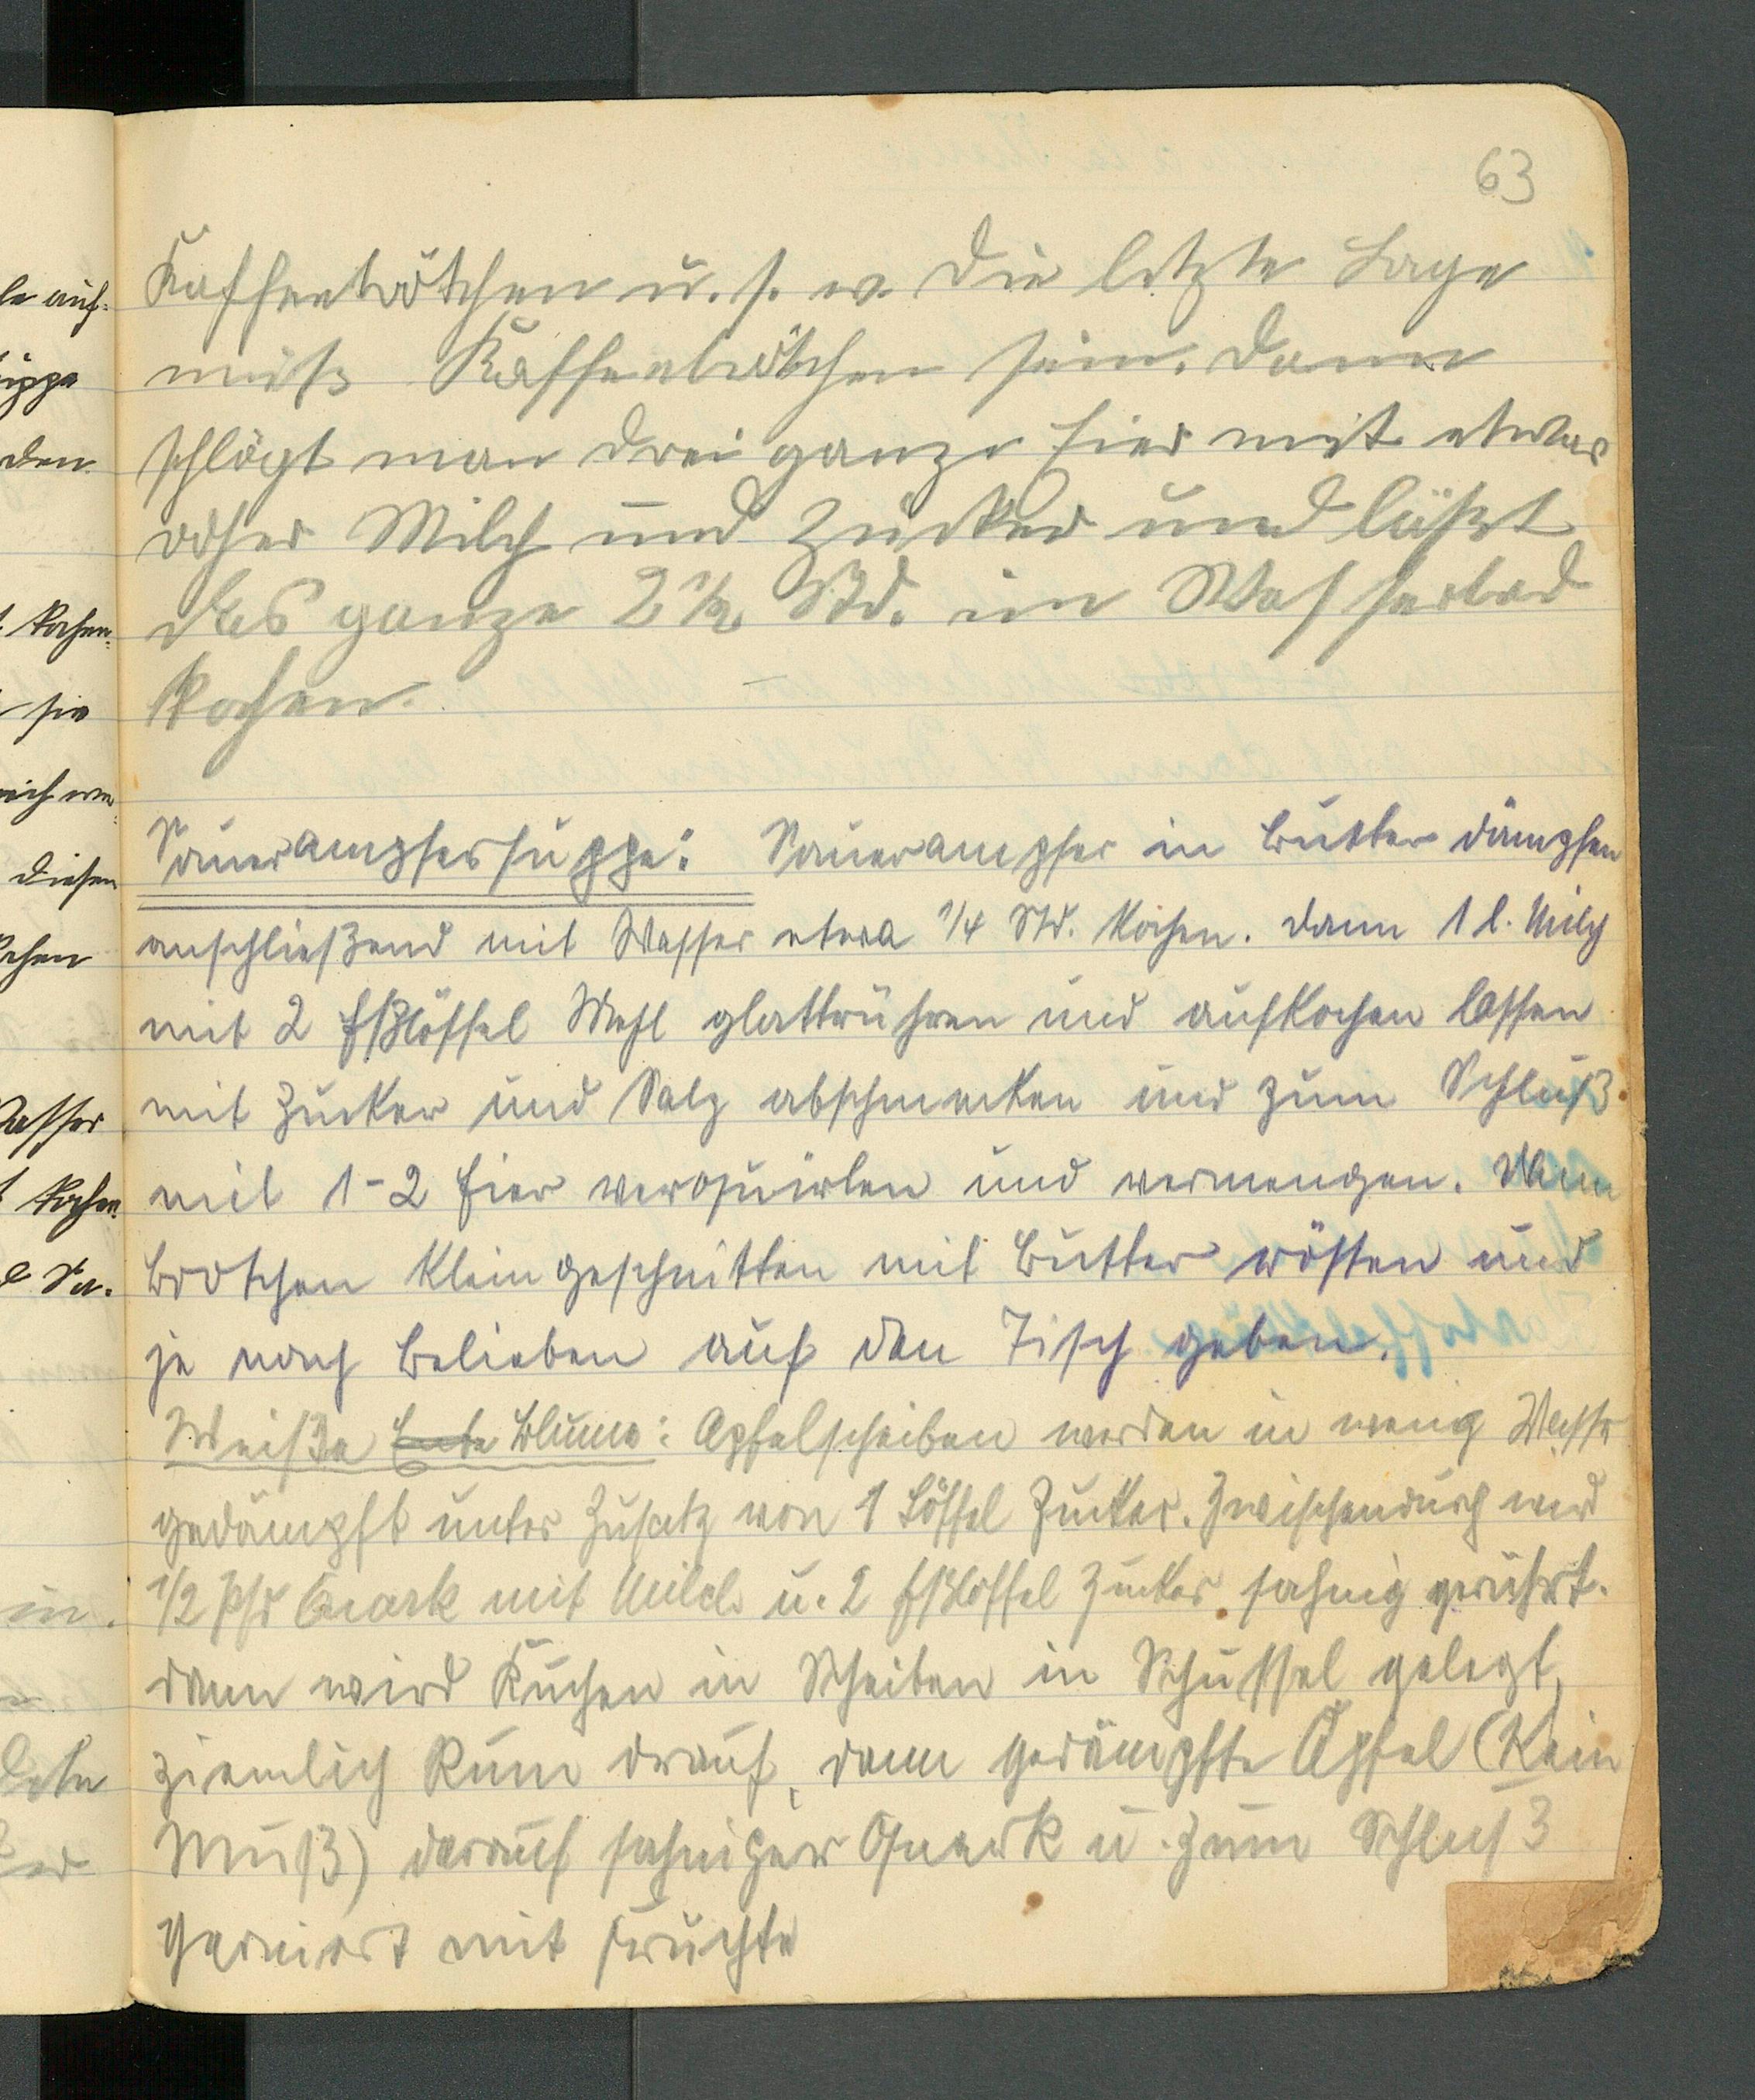 63
Kaffeebrötchen u. s. w. Die letzte Lage
muß Kaffeebrötchen sein. Dann
schlägt man drei ganze Eier mit etwas
roher Milch und Zucker und läßt
das ganze 2 1/2 Std. im Wasserbad
kochen.
Sauerampfersuppe: Sauerampfer in Butter dämpfen
anschließend mit Wasser etwa 1/4 Std. kochen. Dann 1 l. Milch
mit 2 Eßlöffel Mehl glattrühren und aufkochen lassen
mit Zucker und Salz abschmecken und zum Schluß
mit 1-2 Eier verquirlen und vermengen. Dann
Brötchen kleingeschnitten mit Butter rösten und
je nach Belieben auf den Tisch geben.
Weiße Blume: Apfelscheiben werden in wenig Wasser
gedämpft unter Zusatz von 1 Löffel Zucker. Zwischendurch wird
1/2 Pfd Quark mit Milch u. 2 Eßlöffel Zucker sahnig gerührt.
dann wird Kuchen in Scheiben in Schüssel gelegt,
ziemlich Rum drauf, dann gedämpfte Äpfel (Kein
Muß) darauf sahniger Quark u. zum Schluß
garniert mit Früchte